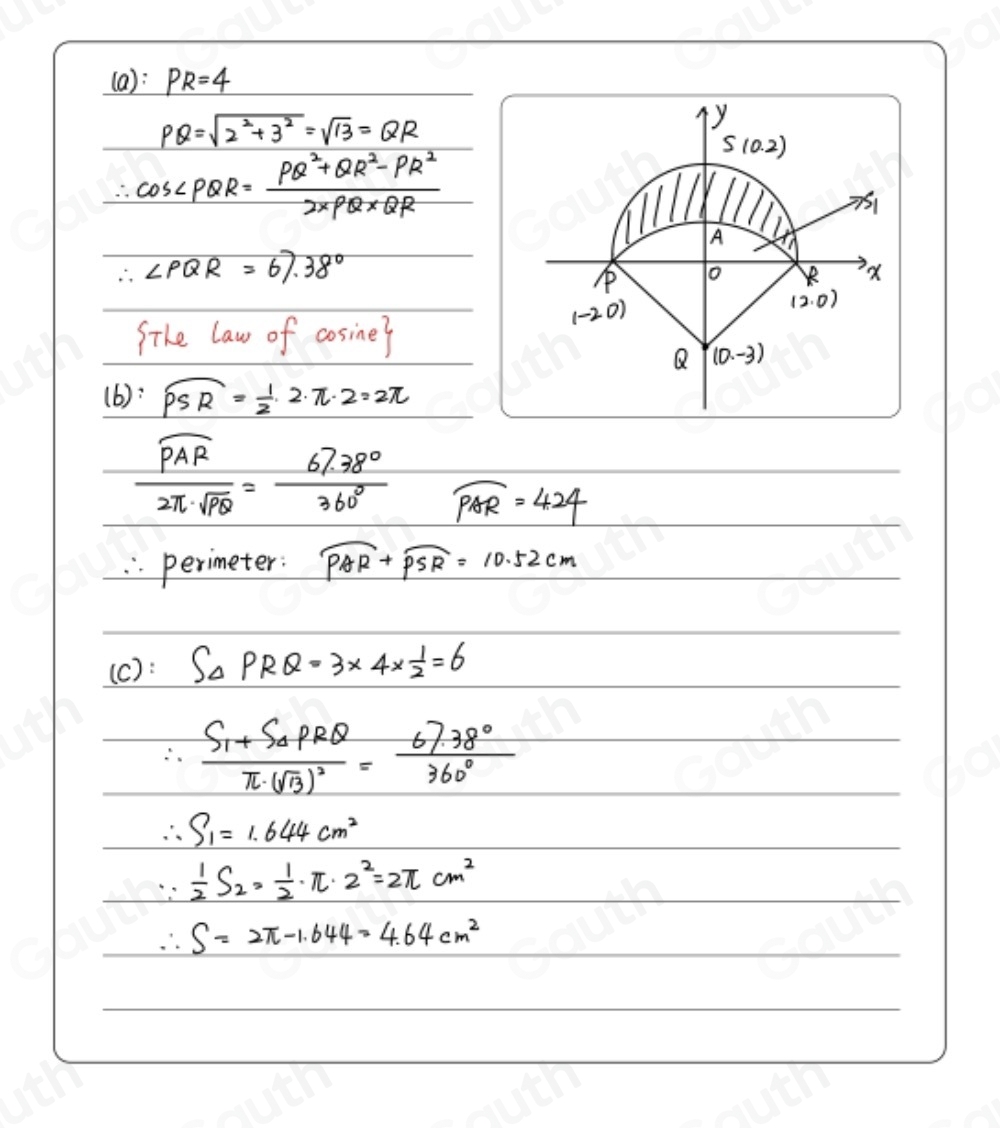 (a): PR=4
PQ=√(2²+3²) = √13 = QR
∴ cos∠PQR = (PQ²+QR²-PR²)/(2×PQ×QR)
∴ ∠PQR = 67.38°
{The law of cosine}
y
S (0.2)
S₁
A
P
O
R
x
(-2 0)
(2.0)
Q (0.-3)
(b): P͡SR = 1/2 · 2·π·2=2π
P͡AR/(2π·√PQ) = 67.38°/360° P͡AR = 4.24
∴ perimeter: P͡AR + P͡SR = 10.52cm
(c): S△ PRQ = 3×4×1/2=6
∴ (S₁+S△PRQ)/(π·(√13)²) = 67.38°/360°
∴ S₁= 1.644 cm²
∵ 1/2 S₂= 1/2·π·2²=2π cm²
∴ S = 2π-1.644 = 4.64cm²
Gauth